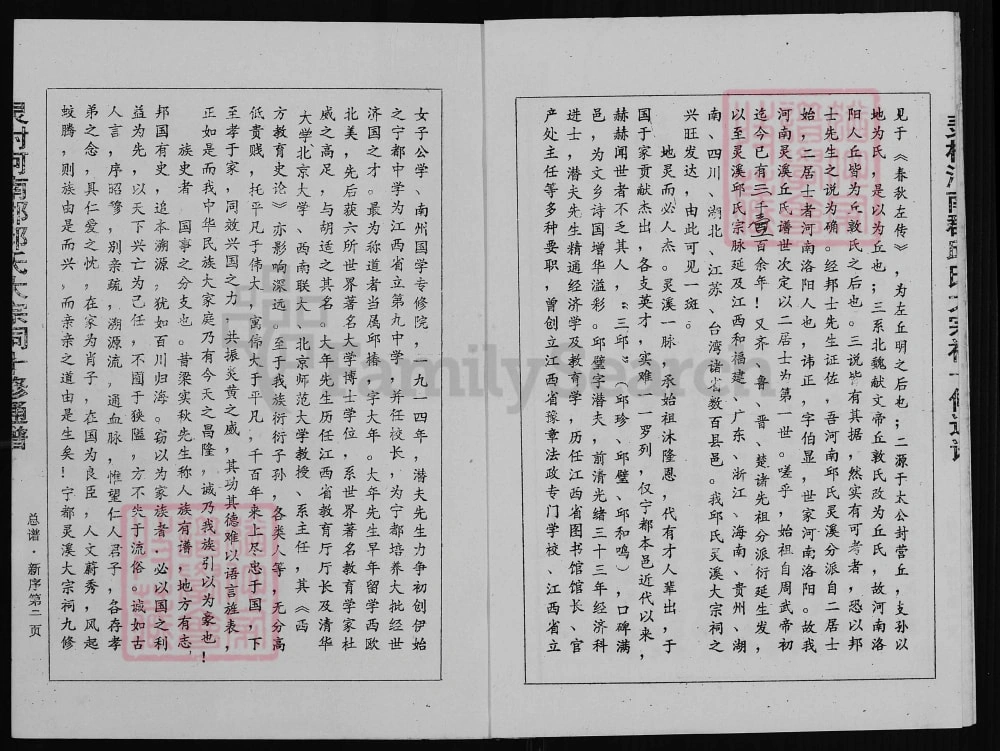 见于《春秋左传》，为左丘明之后也；二源于太公封营丘，支孙以
地为氏，是以为为丘也；三系北魏献文帝丘敦氏改为丘氏，故河南洛
阳人丘皆为丘敦氏之后也。三说皆有其据，然实有可考者，恐以邦
士先生之说为确。经邦士先生证佐，吾河南邱氏灵溪分派自二居士
始，二居士者河南洛阳人也，讳正，字伯显，世家河南洛阳。故我
河南灵溪丘氏谱世次定以二居士为第一世。嗟乎，始祖自周武帝初
迄今已有三千壹百余年！又齐、鲁、晋、楚诸先祖分派衍延生发，
以至灵溪邱氏宗脉延及江西和福建、广东、浙江、海南、贵州、湖
南、四川、湖北、江苏、台湾诸省数百县邑。我邱氏灵溪大宗祠之
兴旺发达，由此可见一斑。
地灵而必人杰。灵溪一脉，承始祖沐隆恩，代有才人辈出，于
国于家贡献杰出，各支英才，实难一一罗列，仅宁都本邑近代以来，
赫赫闻世者不乏其人，“三邱”（邱珍、邱璧、邱和鸣），口碑满
邑，为文乡诗国增华溢彩。邱璧字潜夫，前清光绪三十三年经济科
进士，潜夫先生精通经济学及教育学，历任江西省图书馆馆长、官
产处主任等多种要职，曾创立江西省豫章法政专门学校、江西省立
女子公学、南州国学专修院，一九一四年，潜夫先生力争初创伊始
之宁都中学为江西省立第九中学，并任校长，为宁都培养大批经世
济国之才。最为称道者当属邱椿，字大年。大年先生早年留学西欧
北美，先后获六所世界著名大学博士学位，系世界著名教育学家杜
威之高足，与胡适之其名。大年先生历任江西省教育厅厅长及清华
大学、北京大学、西南联大、北京师范大学教授、系主任，其《西
方教育史论》亦影响深远。至于我族衍衍子孙，各类人等，无分高
低贵贱，托平凡于伟大，寓伟大于平凡，千百年来上尽忠于国，下
至孝于家，同效兴国之力，共振炎黄之威，其功其德难以语言旌表，
正如是而我中华民族大家庭乃有今天之昌隆，诚乃我族引以为豪也！
族史者，国事之分支也。昔梁实秋先生称人族有谱，地方有志，
邦国有史，追本溯源，犹如百川归海。窃以为家族者，必以国之利
益为先，以天下兴亡为己任，不囿于狭隘，方不失于流俗。诚如古
人言，序昭穆，别亲疏，溯源流，通血脉，惟望仁人君子，各存孝
弟之念，具仁爱之忱，在家为肖子，在国为良臣，人文蔚秀，风起
蛟腾，则族由是而兴，而亲亲之道由是生矣！宁都灵溪大宗祠九修
总谱·新序第二页